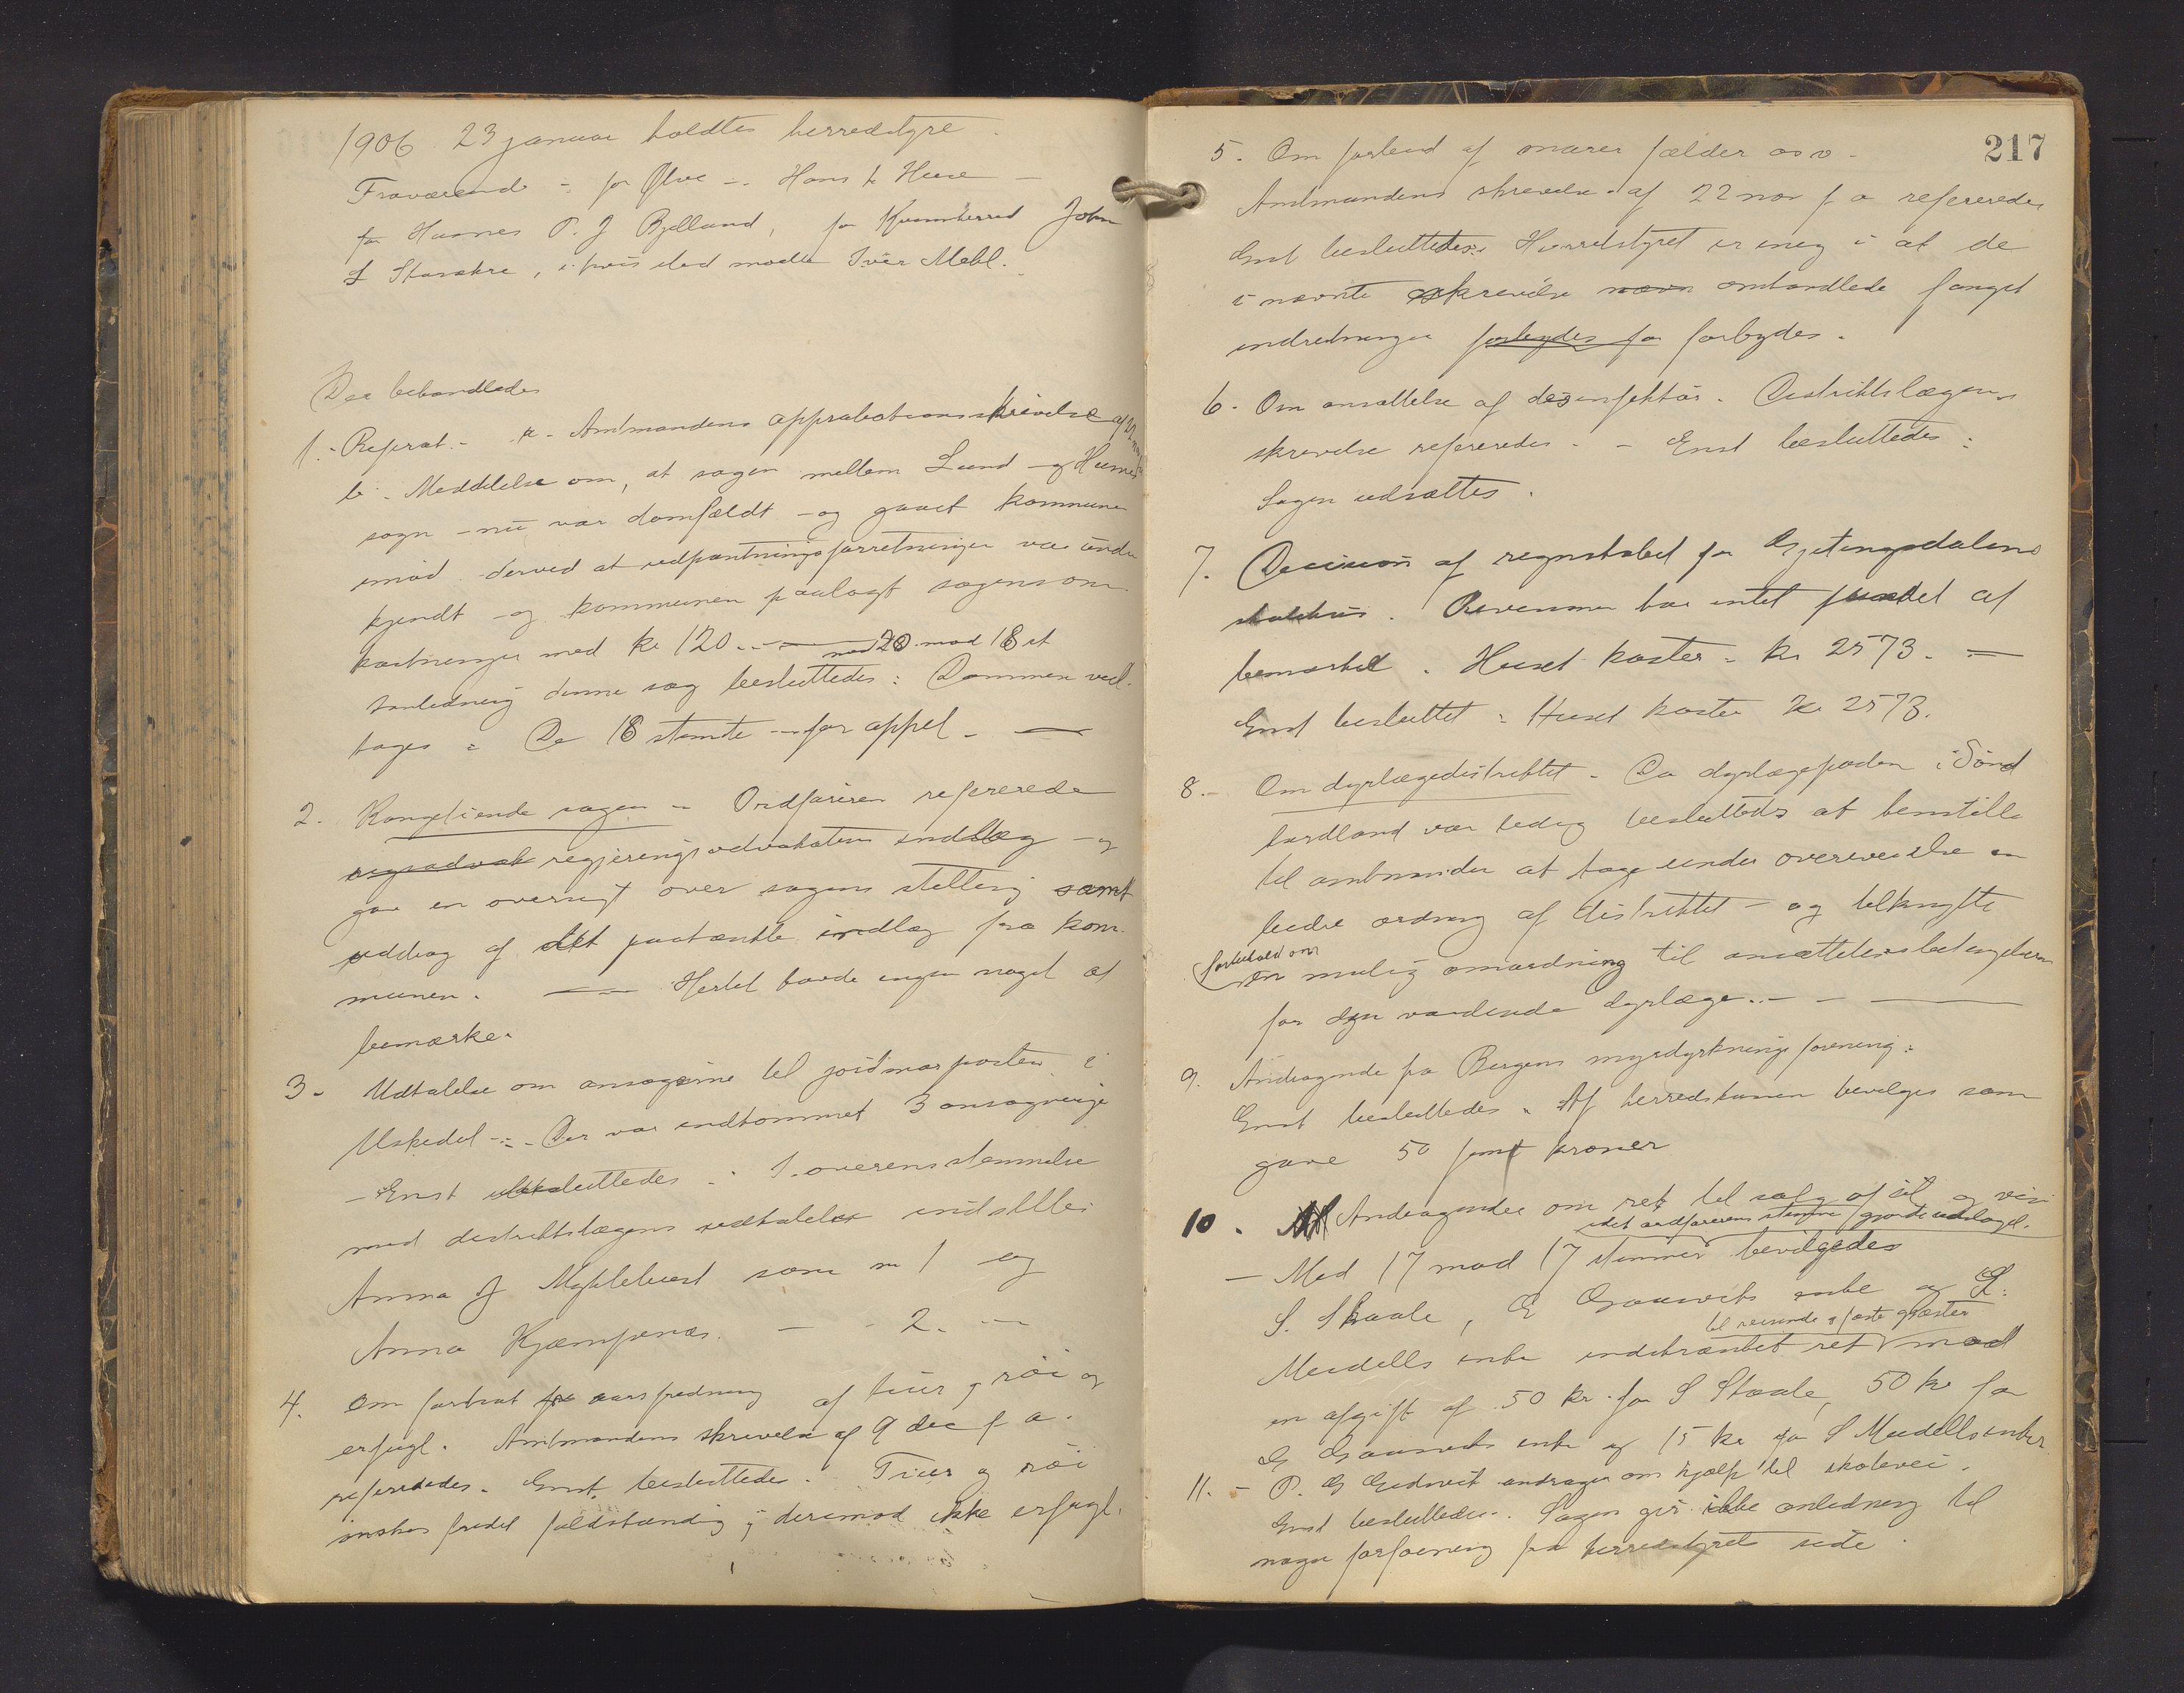 1906 23 januar holdtes herredstyre.
Fraværende - for Ølve - Hans H Huse -
for Husnes O. J Bjelland, for Kvinnherred John
L Skarakre, i hvis sted mødte Iver Mehl.
Der behandledes
1. - Referat. - a. Amtmandens approbationsskrivelse af 22 nov
b. Meddelelse om, at sagen mellem Lund og Husnes
sogn - nu var domfældt - og gaaet kommunen
imod derved at udpantningsforretningen var under
kjendt - og kommunen paalagt sagens om
kostninger med kr 120. - med 20 mod 18 st
I anledning denne sag besluttedes: Dommen ved-
tages = De 18 stemte - for appel. -
2. Kongstiende sagen - Ordføreren refererede
regsadvok regjeringsadvokatens indlæg - og
gav en oversigt over sagens stilling samt
uddrag af det paatænkte indlæg fra kom-
munen. Hertil havde ingen noget at
bemærke.
3 - Udtalelse om ansøgerne til jordmorposten i
Uskedal -:- Der var indkommet 3 ansøgninge
- Enst besluttedes : I overensstemmelse
med distriktslægens udtalelse indstilles
Anna J Myklebust som nr 1 og
Anna Kjæmpenæs. - - 2. -
4. Om fortsat aarsfredning af tiur, røi og
orfugl. Amtmandens skrivelse af 9 dec f a.
refereredes. Enst. besluttedes. Tiur og røi
ønskes fredet fuldstændig; derimod ikke orfugl.
217
5. Om forbud af snarer fælder osv -
Amtmandens skrivelse af 22 nov f a refereredes
Enst besluttedes: Herredstyret er enig i at de
i nævnte skrivelse nævn omhandlede fangst
indretninger forbydes for forbydes.
6. Om ansættelse af desinfektør. Distriktslægens
skrivelse refereredes. - Enst besluttedes:
Sagen udsættes.
7. Decision af regnskabet for Gjetingsdalens
skolehus. Revisionen har intet fundet at
bemærke. Huset koster = kr 2573. =
Enst besluttet = Huset koster Kr 2573.
8. - Om dyrlægedistriktet - Da dyrlægeposten i Sønd
hordland var ledig besluttedes at henstille
til amtmanden at tage under overveielse en
bedre ordning af distriktet - og tilknytte
forbehold om
en mulig omordning til ansættelsesbetingelserne
for den vordende dyrlæge. - - -
9. Andragende fra Bergens myrdyrkningsforening:
Enst besluttedes = Af herredskassen bevilges som
gave 50 femti kroner
10. Andragender om ret til salg af øl og vin
idet ordførerens stemme gjorde udslaget.
- Med 17 mod 17 stemmer bevilgedes
S. Skaale, G Gaussviks enke og S.
til reisende & faste gjæster
Meidells enke indskrænket ret mod
en afgift af 50 kr. for S Skaale, 50 kr for
G Gaussviks enke og 15 kr for S Meidells enke.
11. - P. G Guddvik andrager om hjælp til skolevei.
Enst besluttedes. Sagen gir ikke anledning til
nogen forføining fra herredstyrets side.